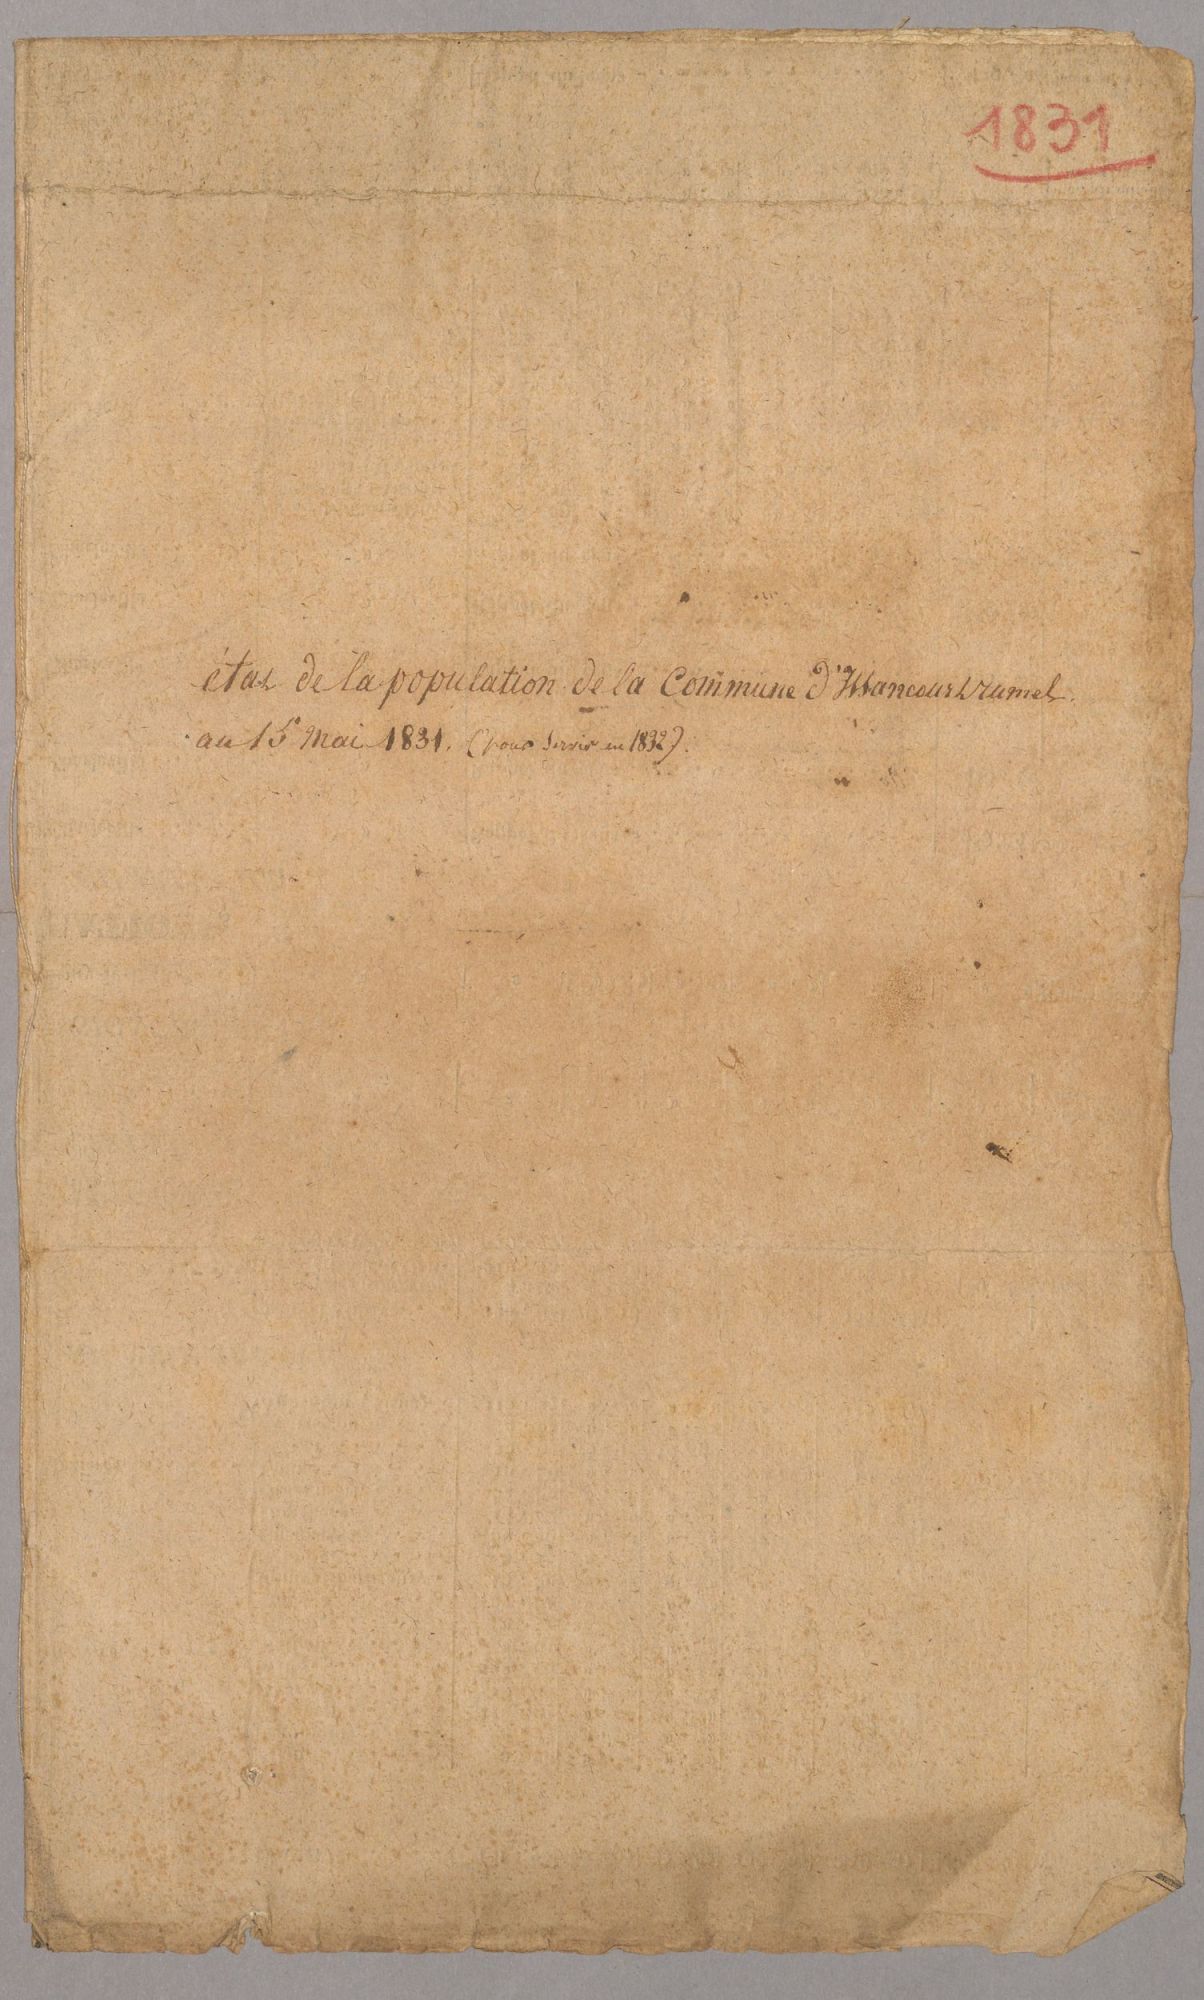 1831
état de la population de la Commune d'Issancourt Rumel.
au 15 Mai 1831. (pour Servir en 1832).